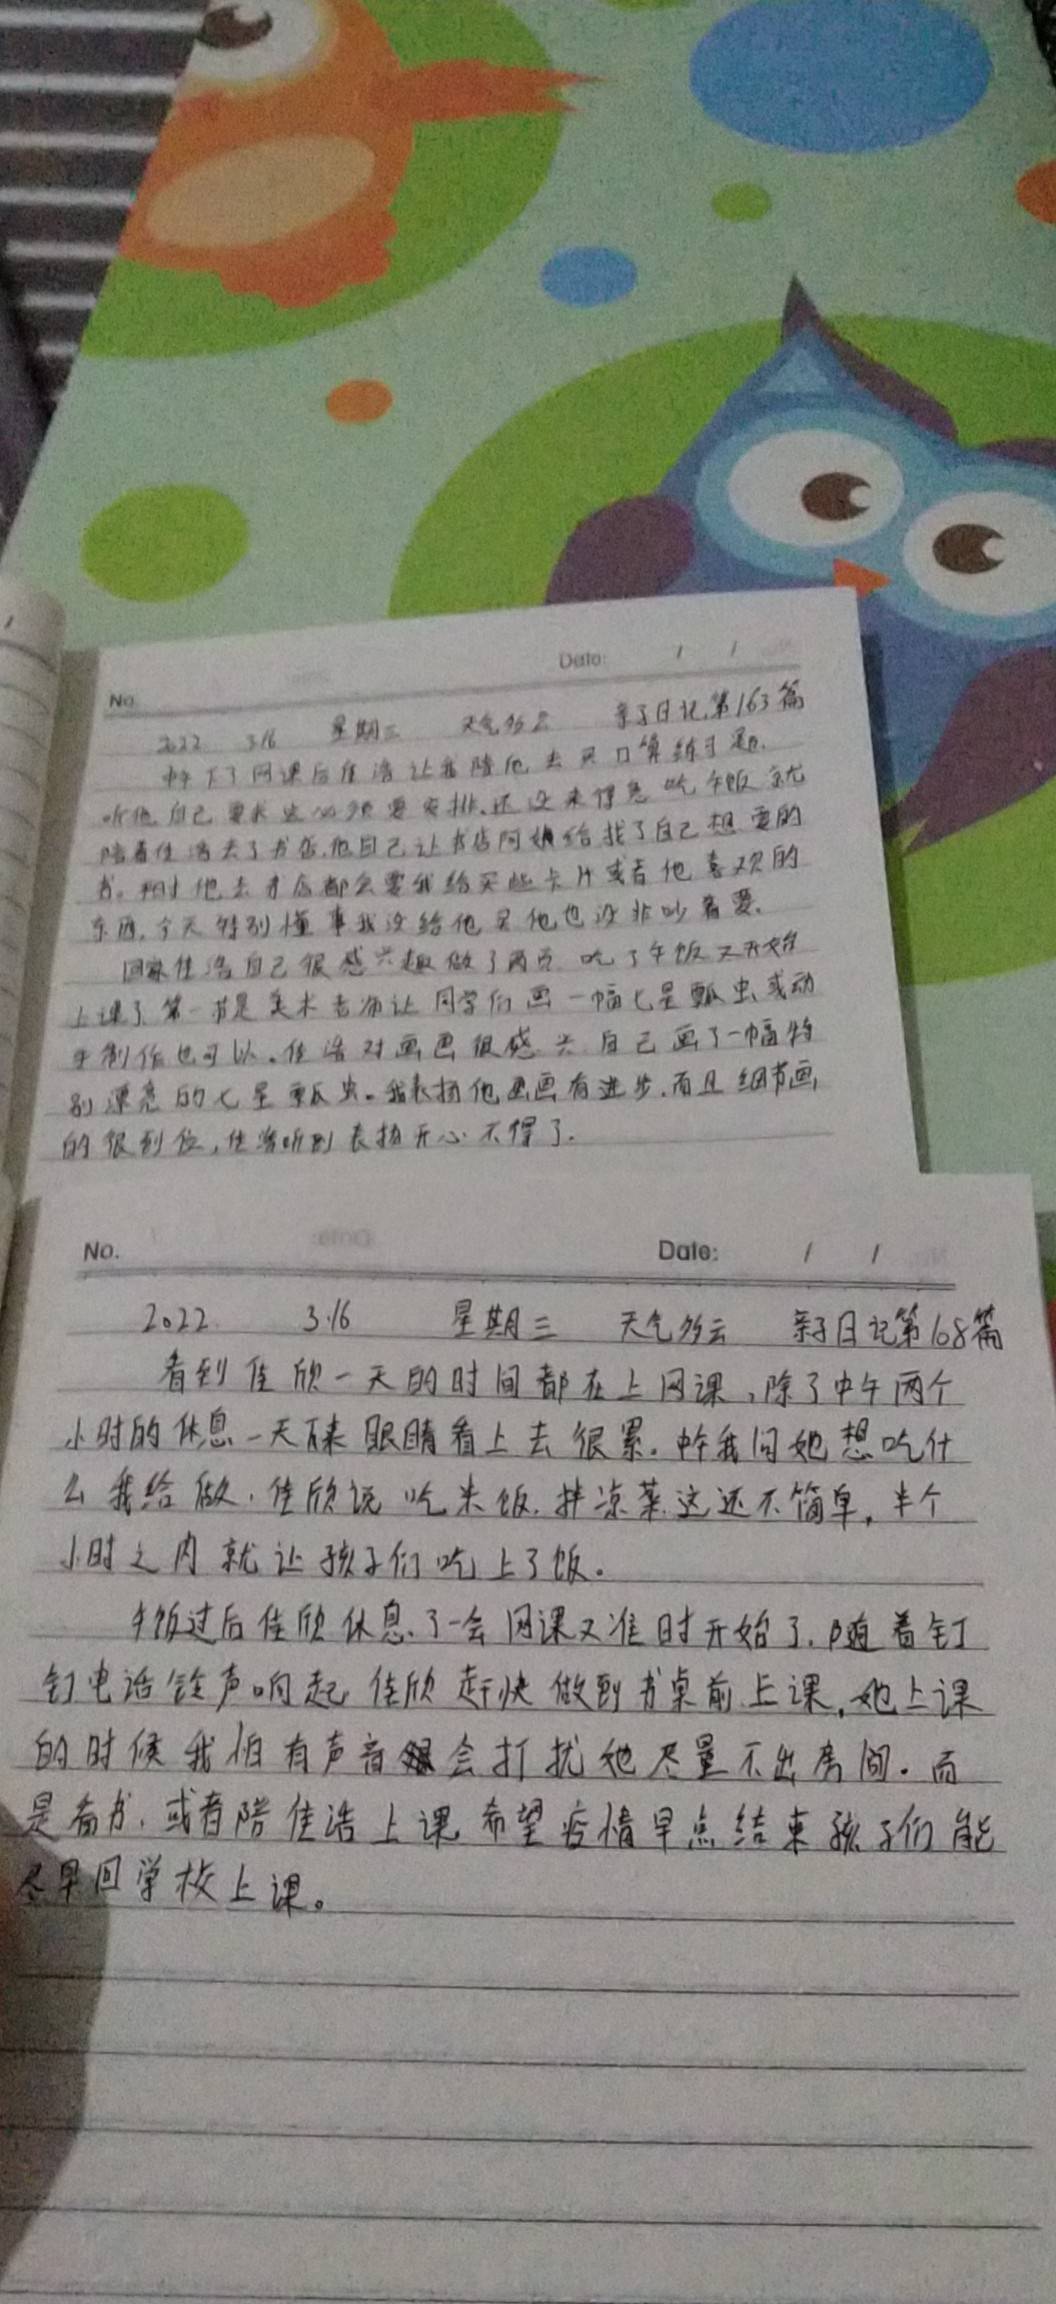 No.
Date: / /
2022 3.16 星期三 天气多云 亲子日记第163篇
中午下了网课后佳浩让我陪他去买口算练习题.
听他自己要求必须要安排.还没来得急吃午饭就
陪着佳浩去了书店.他自己让书店阿姨给找了自己想要的
书。平时他去书店都会要我给买些卡片或者他喜欢的
东西.今天特别懂事我没给他买他也没非吵着要.
回家佳浩自己很感兴趣做了两页 吃了午饭又开始
上课了.第一节是美术老师让同学们画一幅七星瓢虫或动
手制作也可以。佳浩对画画很感兴.自己画了一幅特
别漂亮的七星瓢虫。我表扬他画画有进步.而且细节画
的很到位,佳浩听到表扬开心不得了.
No.
Date: / /
2022. 3.16 星期三 天气多云 亲子日记第168篇
看到佳欣一天的时间都在上网课,除了中午两个
小时的休息一天下来眼睛看上去很累.中午我问她想吃什
么我给做.佳欣说吃米饭.拌凉菜.这还不简单,半个
小时之内就让孩子们吃上了饭。
午饭过后佳欣休息了一会网课又准时开始了.随着钉
钉电话铃声响起佳欣赶快做到书桌前上课,她上课
的时候我怕有声音会打扰她尽量不出房间.而
是看书.或者陪佳浩上课希望疫情早点结束孩子们能
尽早回学校上课。